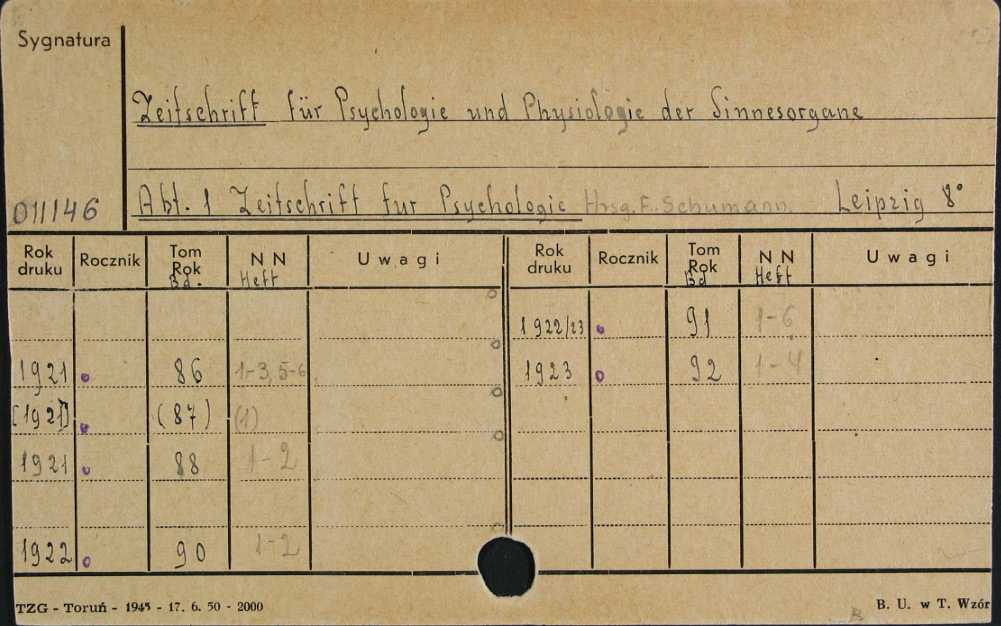 Sygnatura
Zeitschrift für Psychologie und Physiologie der Sinnesorgane
011146 Abt. 1 Zeitschrift fur Psychologie Hrsg. F. Schumann. Leipzig 8°
Rok druku Rocznik Tom Rok Bd. N N Heft Uwagi Rok druku Rocznik Tom Rok Bd N N Heft Uwagi
1922/23 91 1-6
1921 86 1-3, 5-6 1923 92 1-4
[1921] (87) (1)
1921 88 1-2
1922 90 1-2
TZG - Toruń - 1945 - 17. 6. 50 - 2000 B. U. w T. Wzór